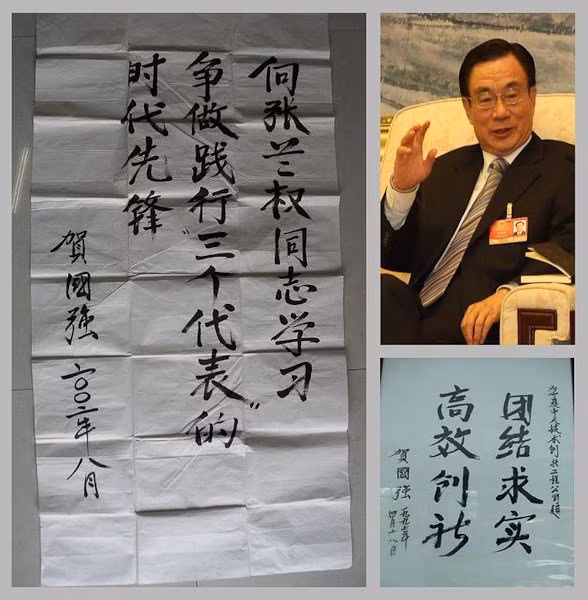 向张兰权同志学习
争做践行"三个代表"的
时代先锋
賀國强 二〇〇二年八月
团结求实
高效创新
賀國强 一九九七年
四月十八日